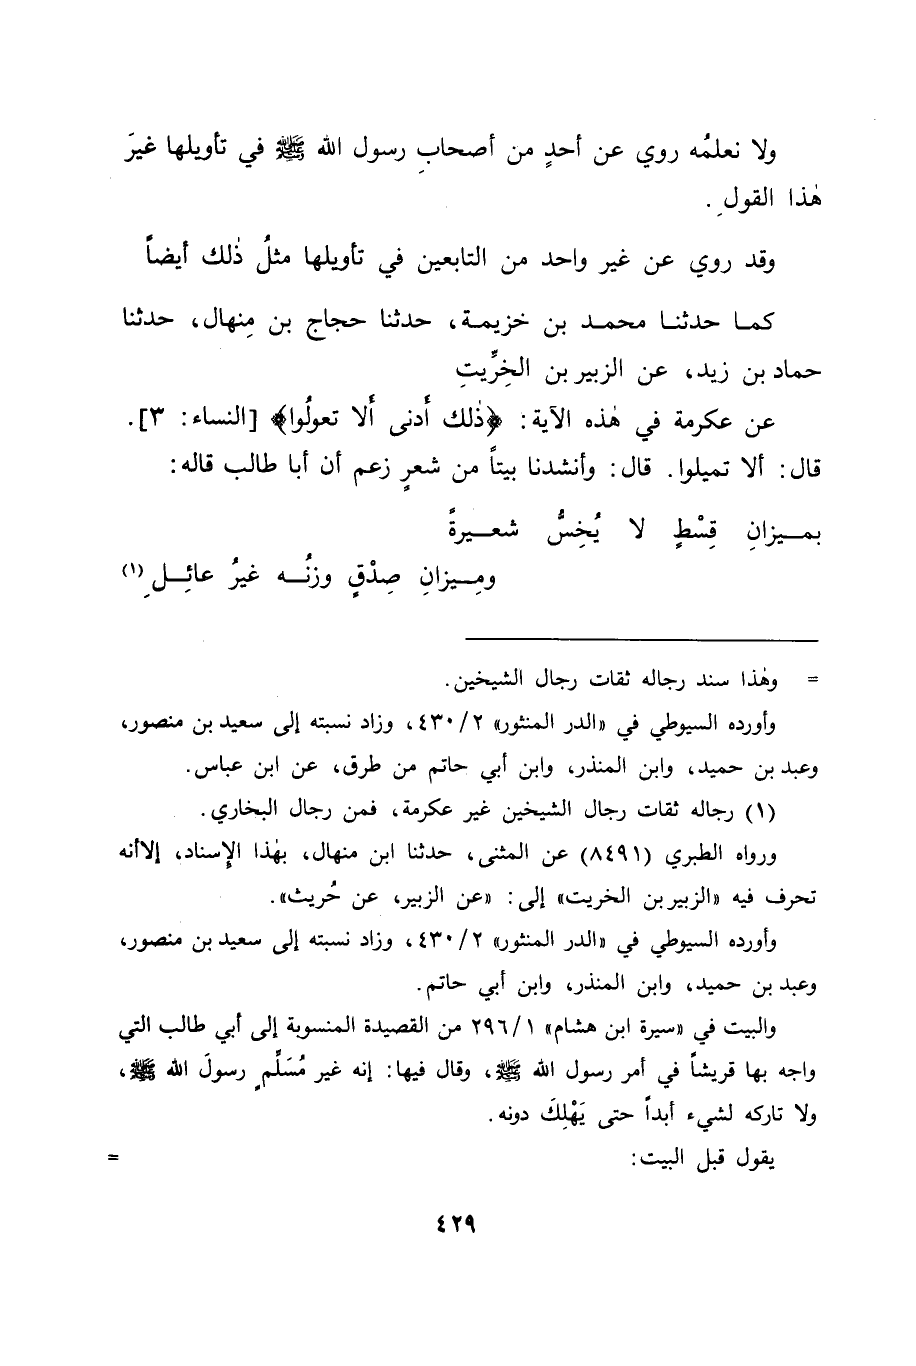 ولا نعلمُه روي عن أحدٍ من أصحابِ رسول الله ﷺ في تأويلها غيرَ
هٰذا القولِ.
وقد روي عن غير واحد من التابعين في تأويلها مثلُ ذٰلك أيضاً
كما حدثنا محمد بن خزيمة، حدثنا حجاج بن مِنهال، حدثنا
حماد بن زيد، عن الزبير بن الخِرِّيتِ
عن عكرمة في هٰذه الآية: ﴿ذٰلك أَدنى أَلا تعولُوا﴾ [النساء: ٣].
قال: ألا تميلوا. قال: وأنشدنا بيتاً من شعرٍ زعم أن أبا طالب قاله:
بمـيزانِ قِسْطٍ لا يُخِسُّ شعـيرةً
ومِـيزانِ صِدْقٍ وزنُـه غيرُ عائِـلِ (١)
= وهٰذا سند رجاله ثقات رجال الشيخين.
وأورده السيوطي في «الدر المنثور» ٤٣٠/٢، وزاد نسبته إلى سعيد بن منصور،
وعبد بن حميد، وابن المنذر، وابن أبي حاتم من طرق، عن ابن عباس.
(١) رجاله ثقات رجال الشيخين غير عكرمة، فمن رجال البخاري.
ورواه الطبري (٨٤٩١) عن المثنى، حدثنا ابن منهال، بهٰذا الإسناد، إلاأنه
تحرف فيه «الزبير بن الخريت» إلى: «عن الزبير، عن حُريث».
وأورده السيوطي في «الدر المنثور» ٤٣٠/٢، وزاد نسبته إلى سعيد بن منصور،
وعبد بن حميد، وابن المنذر، وابن أبي حاتم.
والبيت في «سيرة ابن هشام» ٢٩٦/١ من القصيدة المنسوبة إلى أبي طالب التي
واجه بها قريشاً في أمر رسول الله ﷺ، وقال فيها: إنه غير مُسَلِّمٍ رسولَ الله ﷺ،
ولا تاركه لشيء أبداً حتى يَهْلِكَ دونه.
يقول قبل البيت: =
٤٢٩